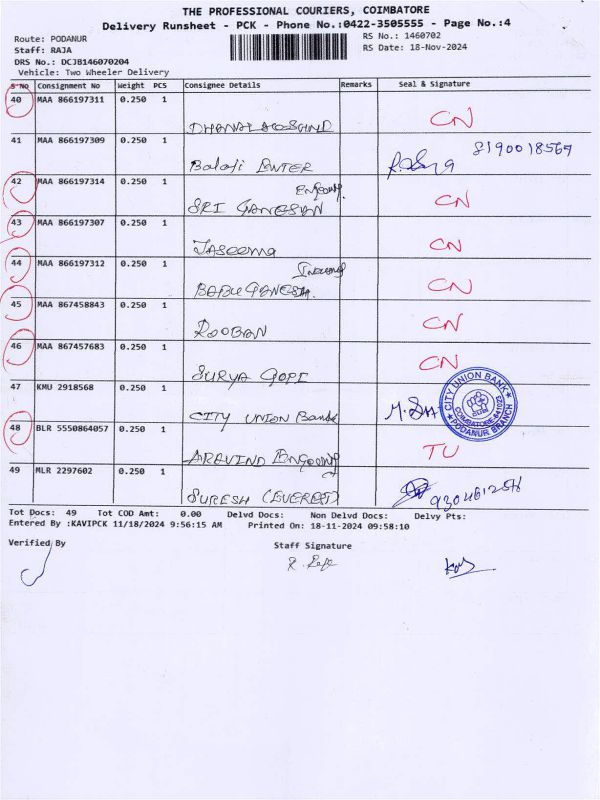 THE PROFESSIONAL COURIERS, COIMBATORE
Delivery Runsheet - PCK - Phone No.:0422-3505555 - Page No.:4
Route: PODANUR
RS No.: 1460702
Staff: RAJA
RS Date: 18-Nov-2024
DRS No.: DCJB146070204
Vehicle: Two Wheeler Delivery
S No Consignment No Weight PCS Consignee Details Remarks Seal & Signature
40 MAA 866197311 0.250 1
CN
41 MAA 866197309 0.250 1
Balaji 8190018569
42 MAA 866197314 0.250 1
SRI GANESAN CN
43 MAA 866197307 0.250 1
Jaseema CN
44 MAA 866197312 0.250 1
BABU GANESH. CN
45 MAA 867458843 0.250 1
ROOBAN CN
46 MAA 867457683 0.250 1
SURYA GOPI CN
47 KMU 2918568 0.250 1
CITY UNION Bank
CITY UNION BANK
COIMBATORE-641023
PODANUR BRANCH
48 BLR 5550864057 0.250 1
ARAVIND TU
49 MLR 2297602 0.250 1
SURESH (EVEREST)
Tot Docs: 49 Tot COD Amt: 0.00 Delvd Docs: Non Delvd Docs: Delvy Pts:
Entered By :KAVIPCK 11/18/2024 9:56:15 AM Printed On: 18-11-2024 09:58:10
Verified By Staff Signature